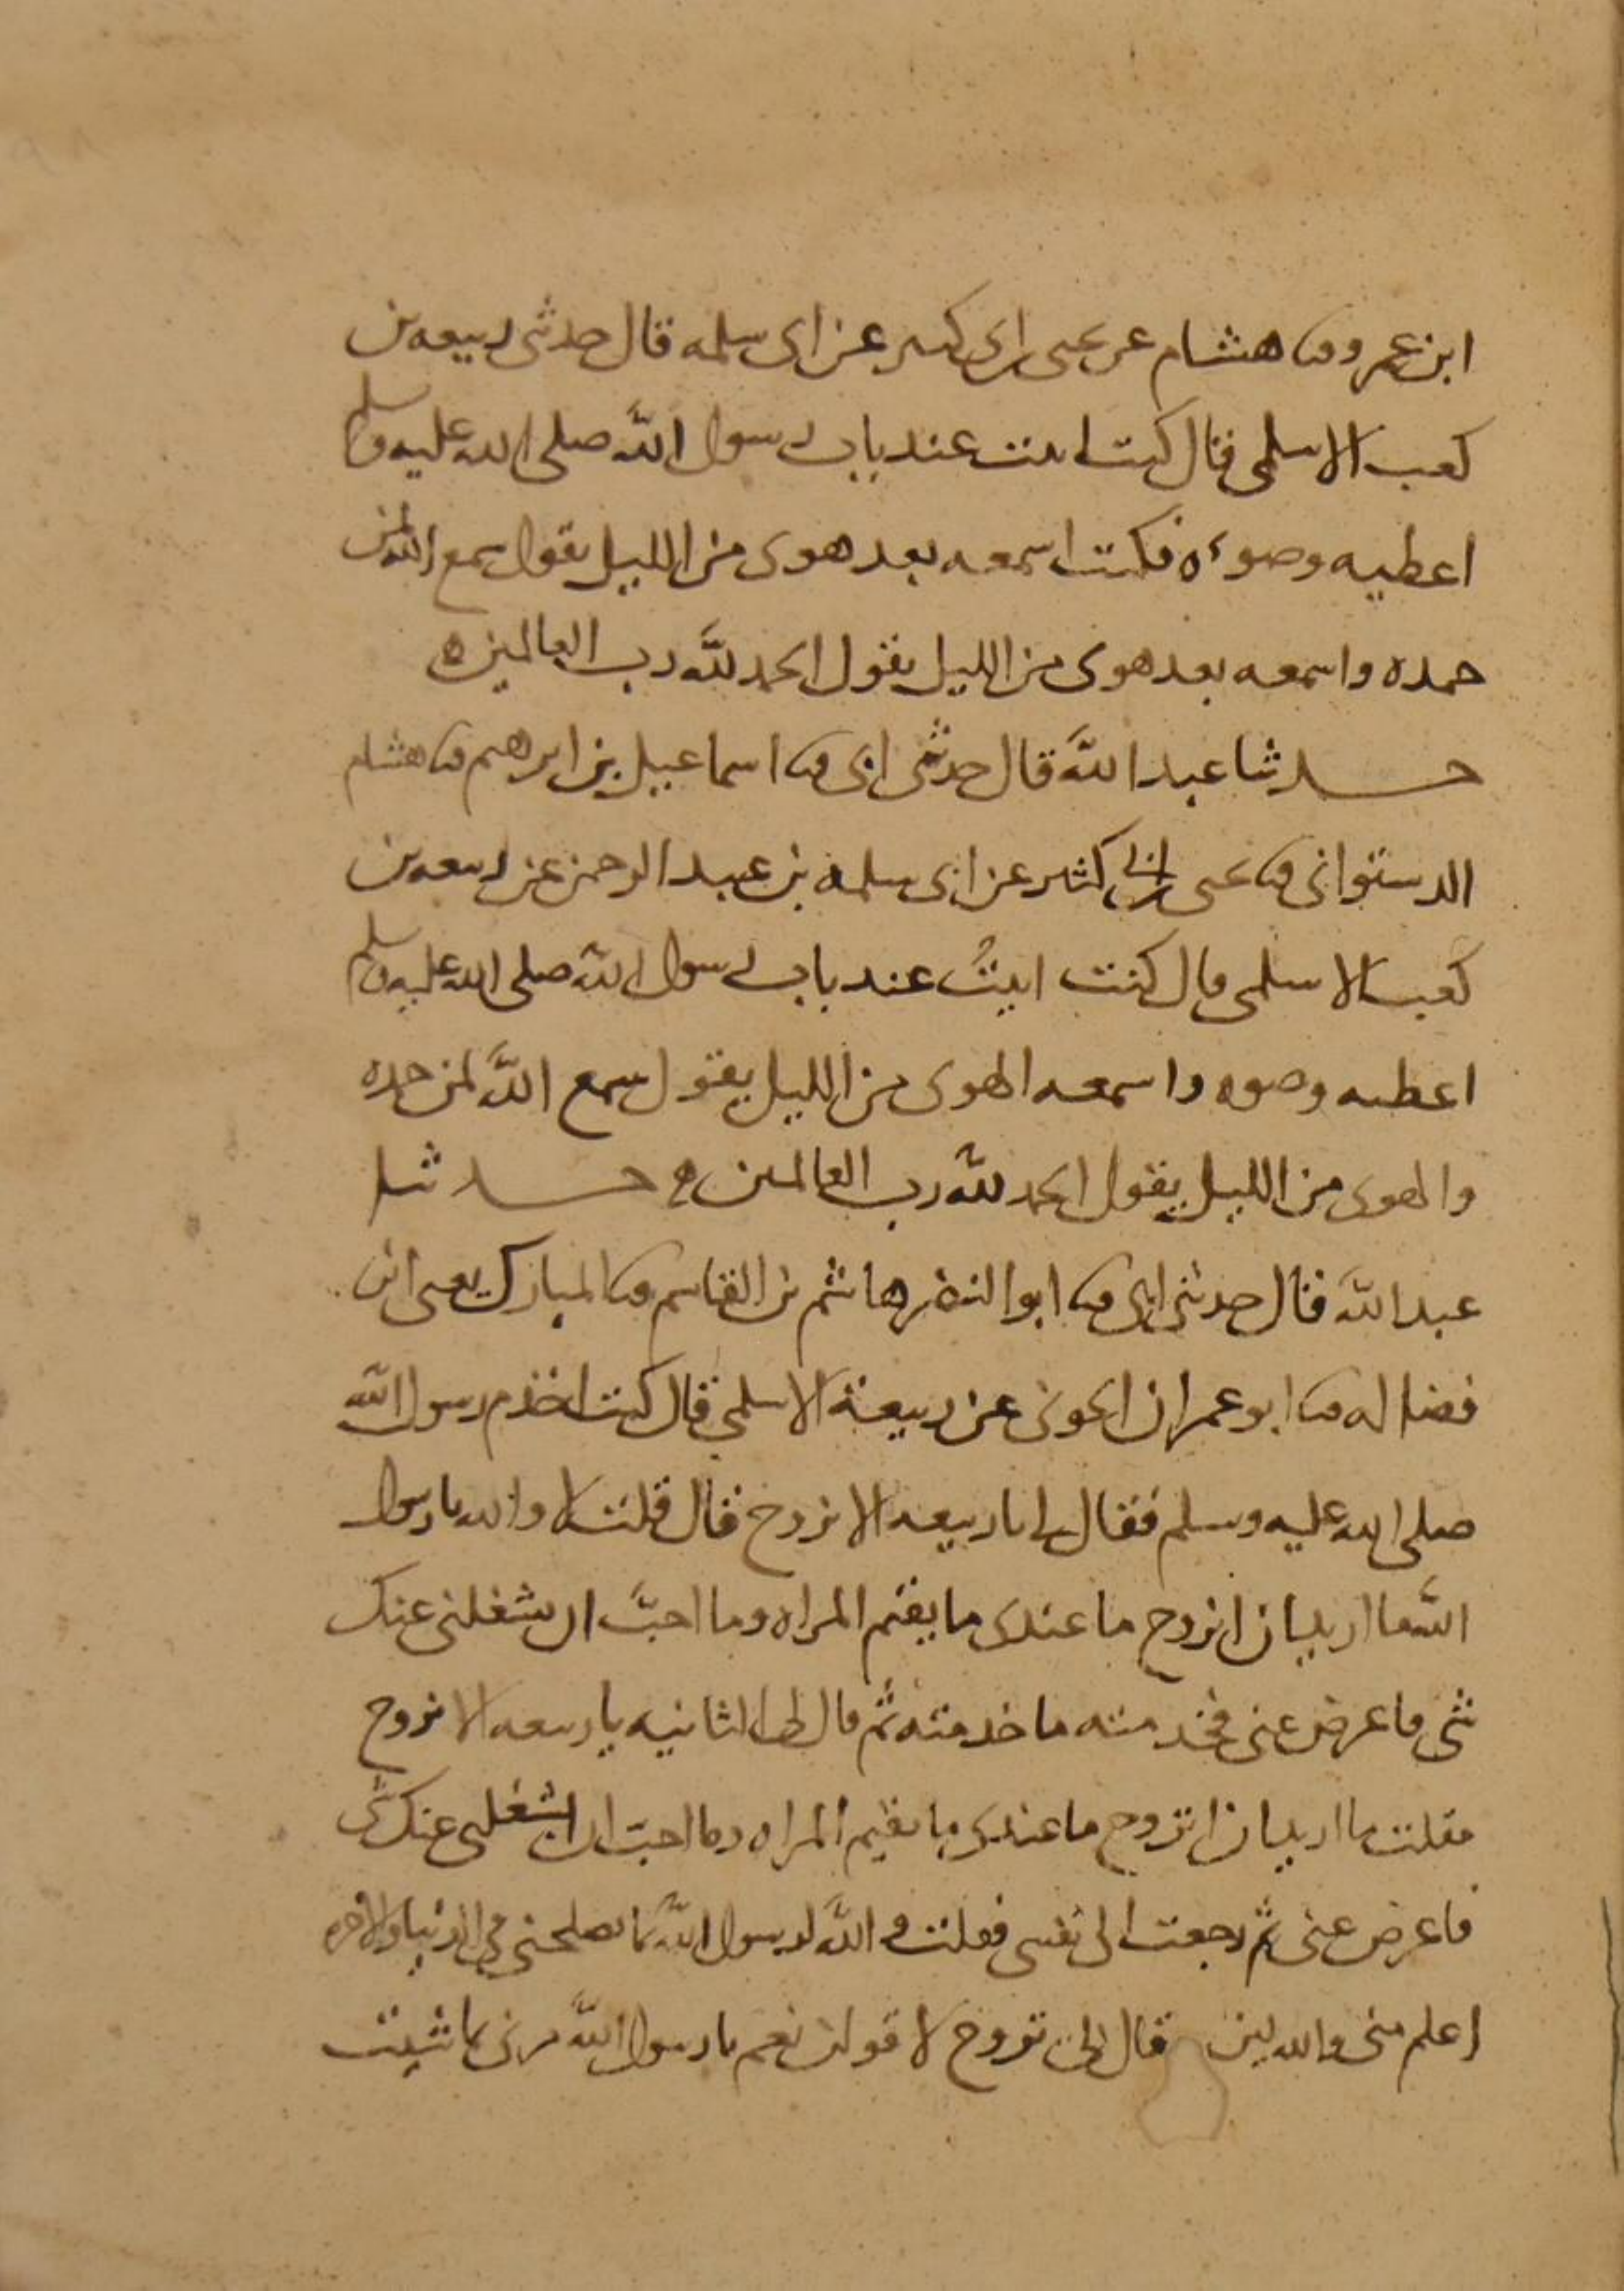 ابن عمرو ثنا هشام عن يحيى بن ابى كثير عن ابى سلمه قال حدثنى ربيعه بن
كعب الاسلمى قال كنت ابيت عند باب رسول الله صلى الله عليه وسلم
اعطيه وضوءه فكنت اسمعه بعد هوى من الليل يقول سمع الله لمن
حمده واسمعه بعد هوى من الليل يقول الحمد لله رب العالمين ه
حدثنا عبد الله قال حدثنى ابى ثنا اسماعيل بن ابرهيم ثنا هشام
الدستوانى ثنا يحيى بن ابى كثير عن ابى سلمه بن عبد الرحمن عن ربيعه بن
كعب الاسلمى قال كنت ابيتُ عند باب رسول الله صلى الله عليه وسلم
اعطيه وضوه واسمعه الهوى من الليل يقول سمع الله لمن حمده
والهوى من الليل يقول الحمد لله رب العالمين ه حدثنا
عبد الله قال حدثنى ابى ثنا ابو النضر هاشم بن القاسم ثنا المبارك يعنى ابن
فضاله ثنا ابو عمران الجونى عن ربيعة الاسلمى قال كنت اخدم رسول الله
صلى الله عليه وسلم فقال لى يا ربيعه الا تزوج قال قلت لا والله يا رسول
الله ما اريد ان اتزوج ما عندى ما يقيم المراه وما احبّ ان يشغلنى عنك
شى فاعرض عنى فخدمته ما خدمته ثم قال لى الثانيه يا ربيعه الا تزوج
فقلت ما اريد ان اتزوج ما عندى ما يقيم المراه وما احبّ ان يشغلنى عنك شى
فاعرض عنى ثم رجعت الى نفسى فقلت والله لرسول الله بما يصلحنى فى الدنيا والاخره
اعلم منى والله لين قال لى تزوج لا قولن نعم يا رسول الله مرنى بما شيت